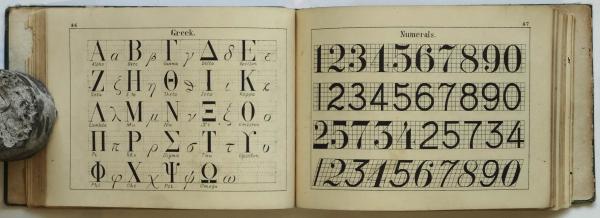 46
Greek.
Α α Β β Γ γ Δ δ Ε ε
Alpha Beta Gamma Delta Epsilon
Ζ ζ Η η Θ θ Ι ι Κ κ
Zeta Eta Theta Iota Kappa
Λ λ Μ μ Ν ν Ξ ξ Ο ο
Lambda Mu Nu Xi Omicron
Π π Ρ ρ Σ σ Τ τ Υ υ
Pi Rho Sigma Tau Upsilon
Φ φ Χ χ Ψ ψ Ω ω
Phi Chi Psi Omega
47
Numerals.
1234567890
1234567890
2573412 5734
1234567890